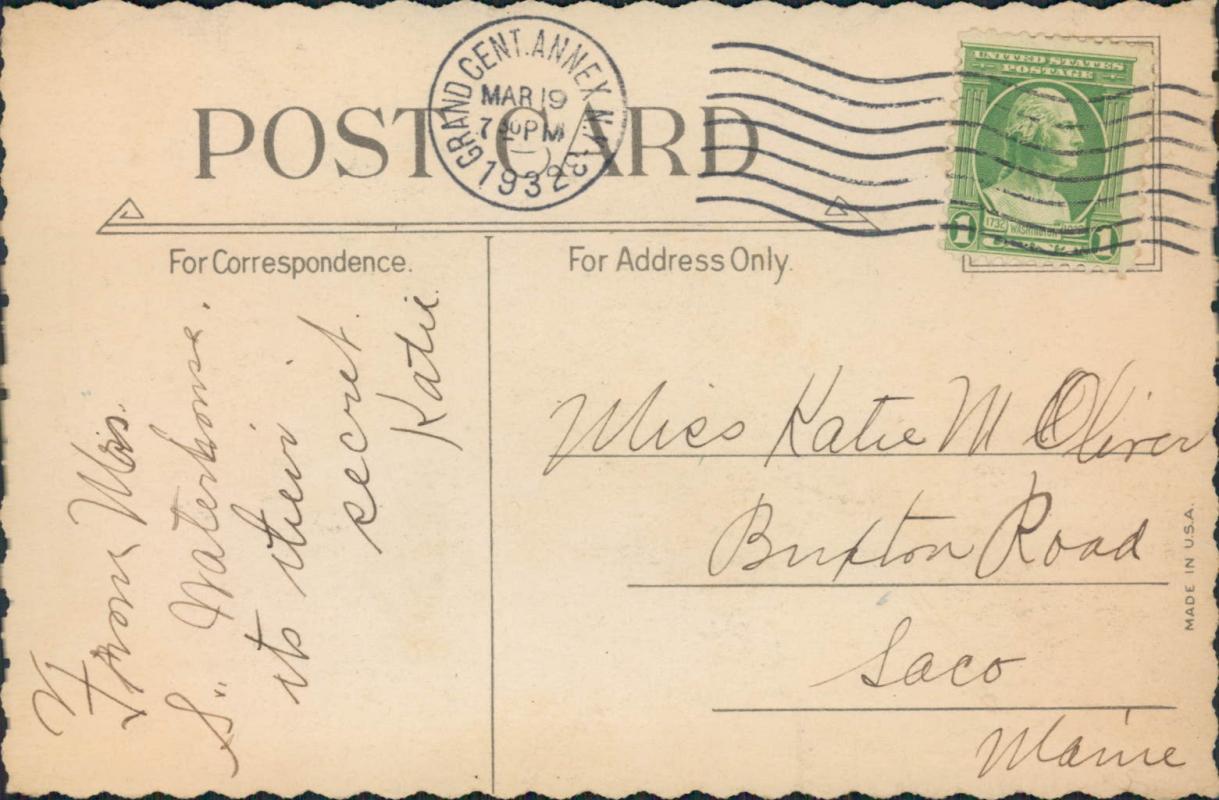 POST CARD
GRAND CENT. ANNEX N.Y. 3
MAR 19
7 30 PM
1932
UNITED STATES
POSTAGE
1732 WASHINGTON
1 1
For Correspondence.
For Address Only.
From Mrs.
S. Waterhouse.
its their
secret
Katie
Miss Katie M Oliver
Buxton Road
Saco
Maine
MADE IN U.S.A.